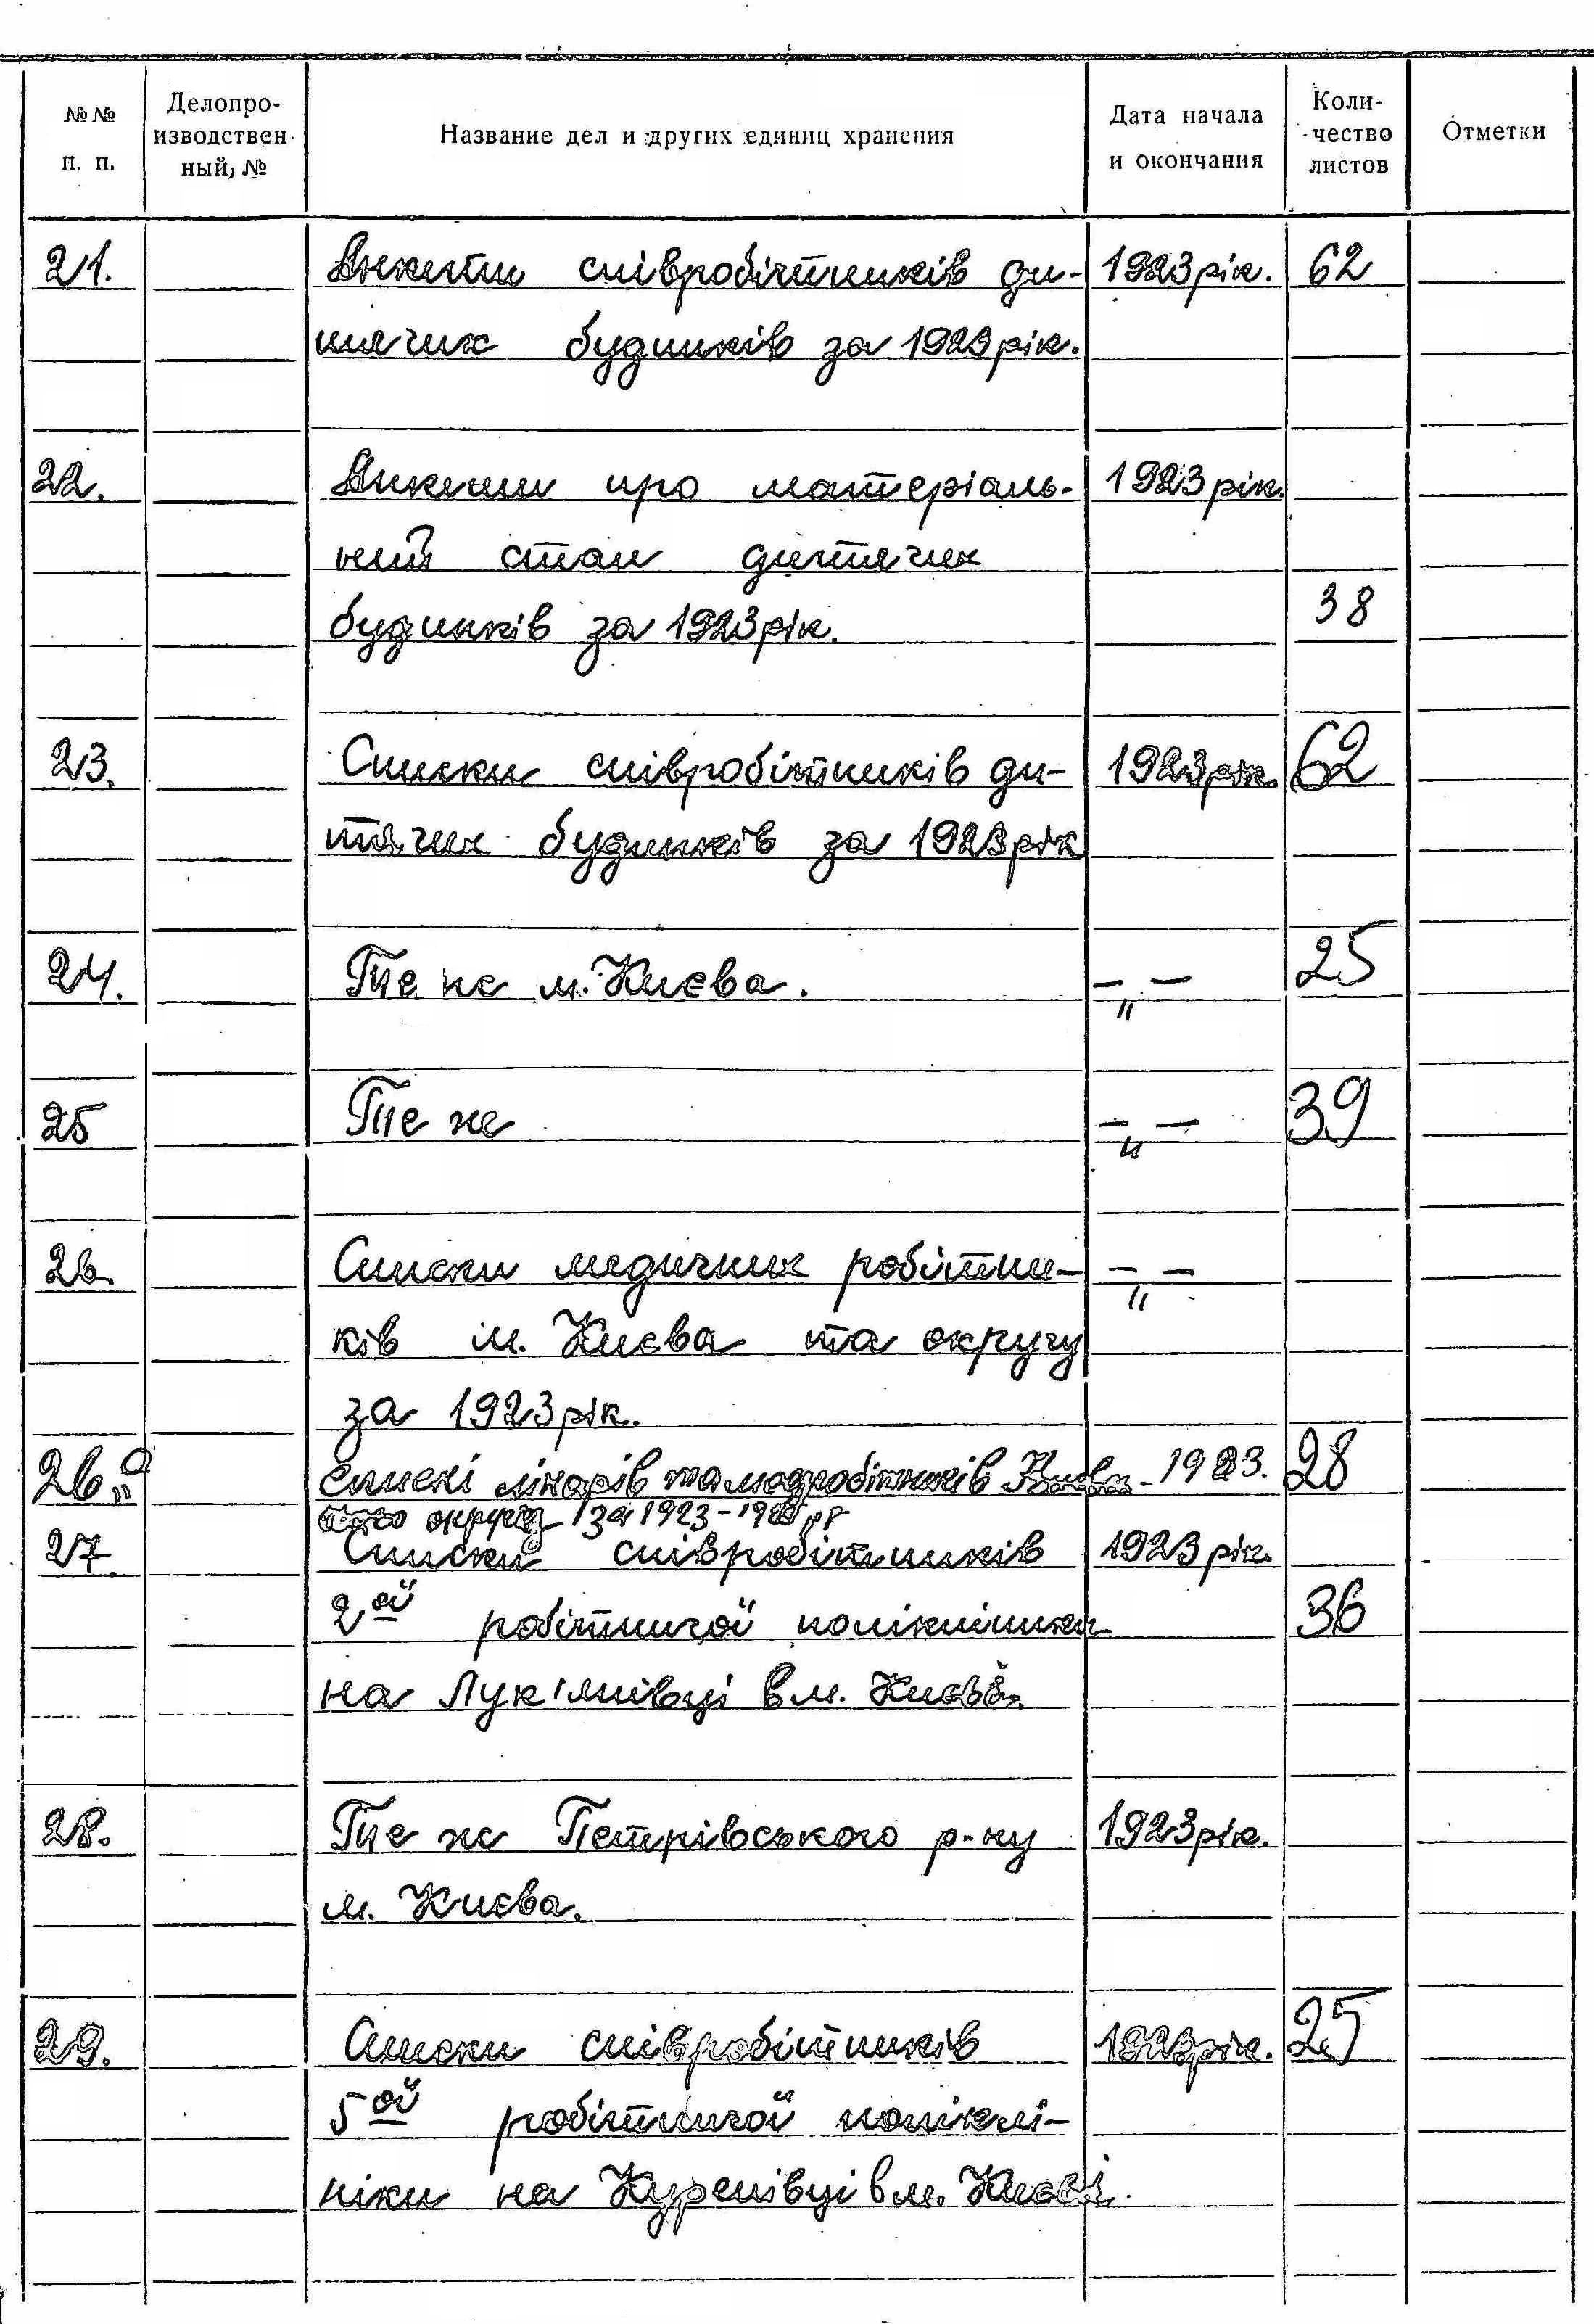 №№ п. п.
Делопро-
изводствен-
ный №
Название дел и других единиц хранения
Дата начала
и окончания
Коли-
чество
листов
Отметки
21. Анкети співробітників ди- 1923 рік. 62
тячих будинків за 1923 рік.
22. Анкети про матеріаль- 1923 рік.
ний стан дитячих
38
будинків за 1923 рік.
23. Списки співробітників ди- 1923 рік. 62
тячих будинків за 1923 рік
24. Те же м. Києва. – " – 25
25 Те же – " – 39
26. Списки медичних робітни- – " –
ків м. Києва та округу
за 1923 рік.
26"а" Списки лікарів та медробітників 1923. 28
округи за 1923-
27. Списки співробітників 1923 рік.
2ой робітничої поліклініки 36
на Лук'янівці в м. Києві.
28. Те же Петрівського р-ну 1923 рік.
м. Києва.
29. Списки співробітників 1923 рік. 25
5ой робітничої поліклі-
ніки на Куренівці в м. Києві.